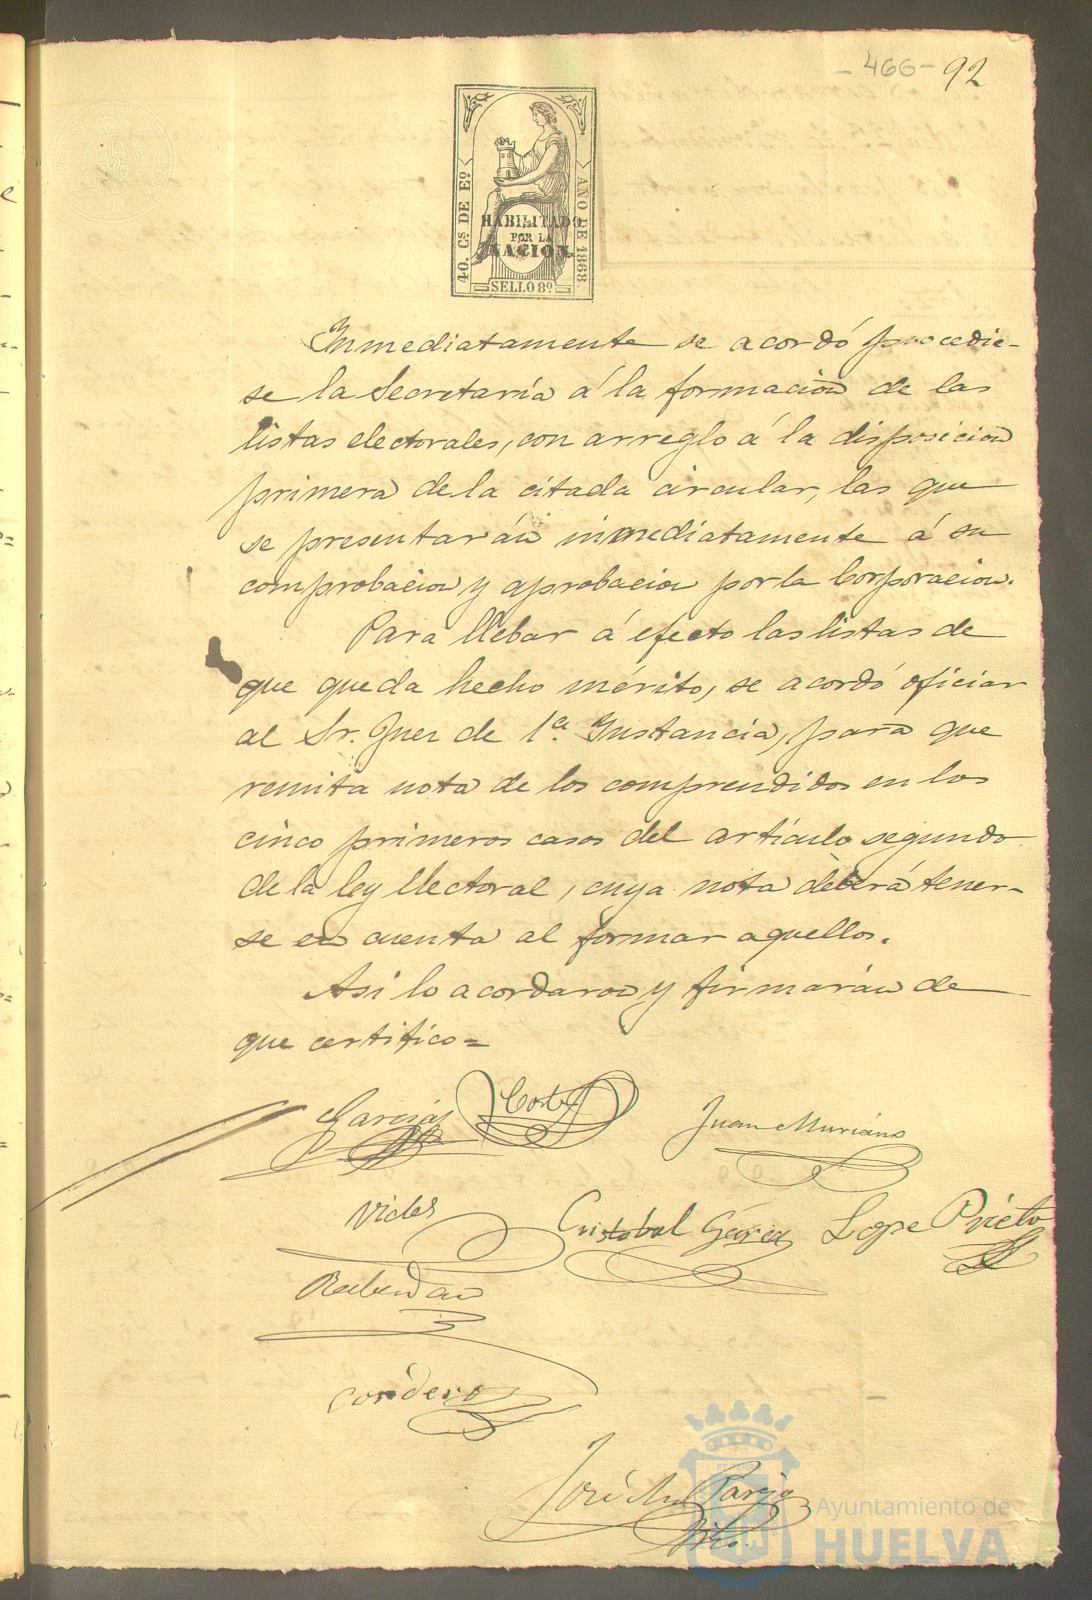 - 466 - 92
40. Cs. DE Eo.
AÑO DE 1868
HABILITADO
POR LA
NACION.
SELLO 8º
Inmediatamente se acordó procedie-
se la Secretaría á la formacion de las
listas electorales, con arreglo á la disposicion
primera de la citada circular, las que
se presentarán inmediatamente á su
comprobacion y aprobacion por la Corporacion.
Para llebar á efecto las listas de
que queda hecho mérito, se acordó oficiar
al Sr. Juez de 1.ª Instancia, para que
remita nota de los comprendidos en los
cinco primeros casos del artículo segundo
de la ley electoral, cuya nota deberá tener-
se en cuenta al formar aquellos.
Asi lo acordaron y firmarán de
que certifico=
García Cortes Juan Muriano
Vides Cristobal García Lope Prieto
Cordero
José Mª Pareja
Ayuntamiento de
HUELVA